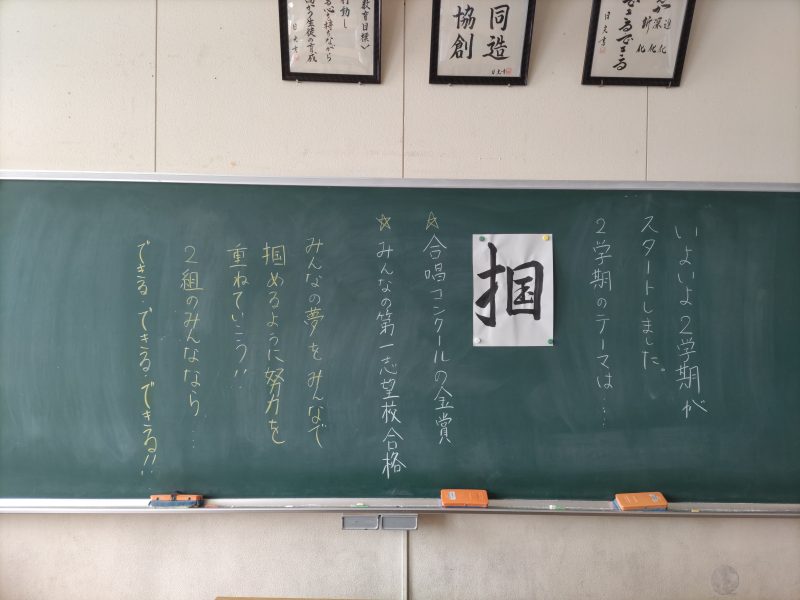 いよいよ2学期が
スタートしました。
2学期のテーマは…
掴
☆合唱コンクールの金賞
☆みんなの第一志望校合格
みんなの夢をみんなで
掴めるように努力を
重ねていこう!!
2組のみんななら…
できる、できる、できる!!
進化
新化
深化
同造
協創
教育目標〉
行動し